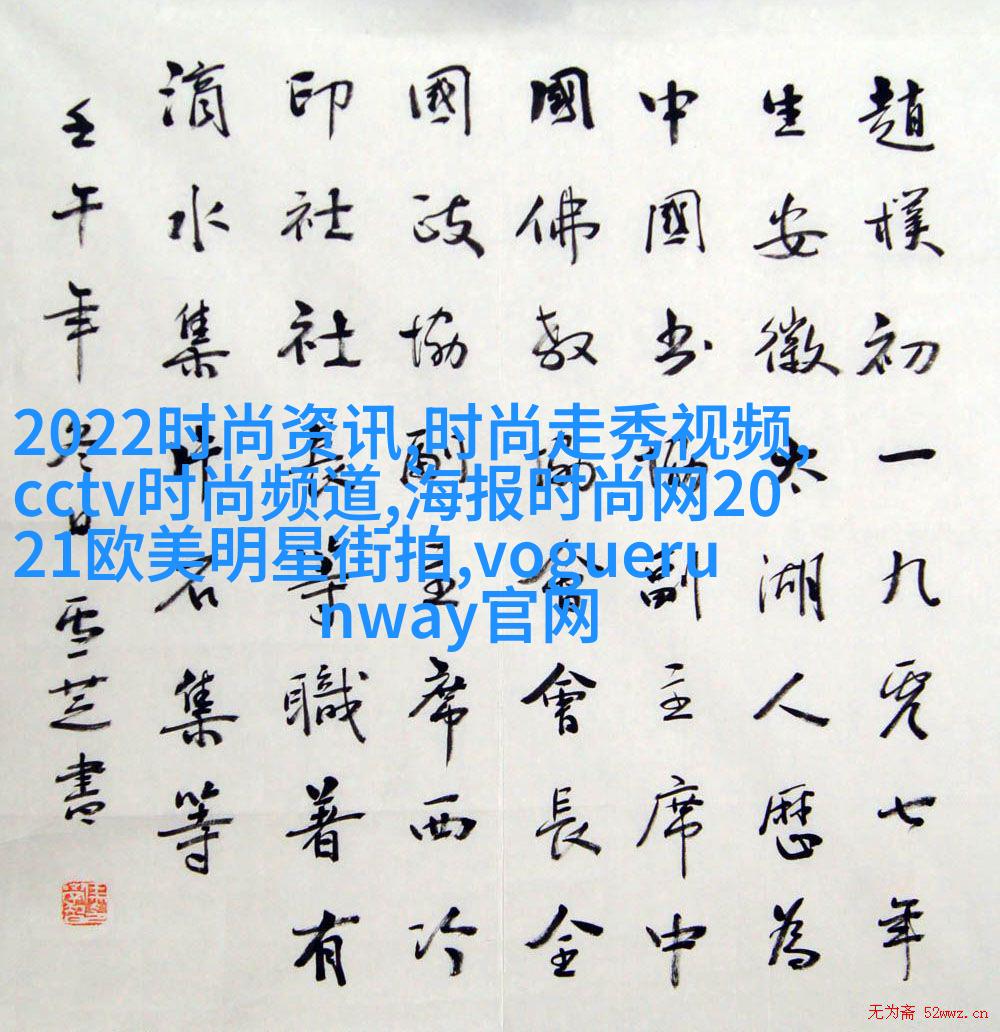 趙樸初一九零七年
生安徽太湖人歷為
中國书協副主席中
國佛教協會會長全
國政協副主席西冷
印社社長等職著有
滴水集片石集等
壬午年冬日雪芝書
2022时尚资讯,时尚走秀视频,
cctv时尚频道,海报时尚网20
21欧美明星街拍,vogueru
nway官网
无为斋 52wwz.cn